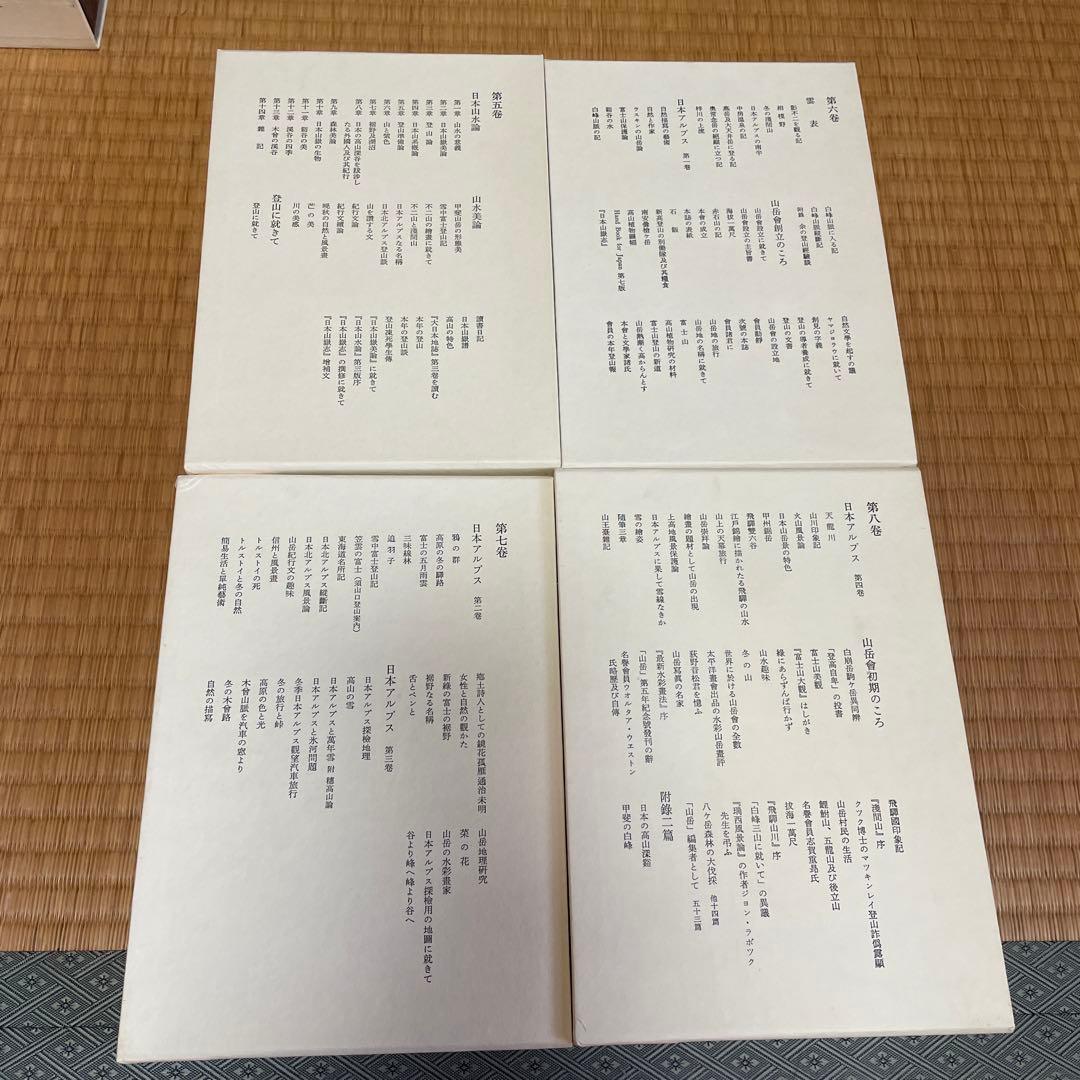 第五卷
日本山水論
第一章 山水の意義
第二章 日本山嶽美論
第三章 登山論
第四章 日本山系概論
第五章 登山準備論
第六章 山と紫色
第七章 裾野及湖沼
第八章 日本の高山深谷を跋渉し
たる外國人及び其紀行
第九章 森林美論
第十章 日本山嶽の生物
第十一章 谿谷の美
第十二章 溪谷の四季
第十三章 木曾の溪谷
第十四章 雜記
山水美論
甲斐山岳の形態美
雪中富士登山記
不二山の繪畫に就きて
不二山と淺間山
日本アルプスなる名稱
日本北アルプス登山談
山を讚する文
紀行文論
紀行文續論
晩秋の自然と風景畫
芒の美
川の美感
登山に就きて
登山に就きて
讀書日記
日本山嶽譜
高山の特色
『大日本地誌』第三卷を讀む
本年の登山
本年の登山談
登山凍死學生傳
『日本山嶽美論』に就きて
『日本山水論』第三版序
『日本山嶽志』の撰修に就きて
『日本山嶽志』增補文
第六卷
雲表
影不二を觀る記
相模野
冬の淺間山
日本アルプスの南半
中房溫泉の記
燕岳及大天井岳に登る記
奧常念岳の絕巓に立つ記
梓川の上流
日本アルプス 第一卷
自然描寫の藝術
自然と作家
ラスキンの山岳論
富士山保護論
谿谷の水
白峰山脈の記
白峰山脈に入る記
白峰山脈縱斷記
附錄 余の登山經驗談
山岳會創立のころ
山岳會設立に就きて
山岳會設立の主旨書
海拔一萬尺
赤石山の記
本會の成立
本誌の表紙
石骸
新高登山の別働隊及び其糧食
南安曇槍ヶ岳
高山植物圖幅
Hand Book for Japan 第七版
『日本山嶽志』
自然文學を起すの議
ヤマジョラウに就いて
創見の字義
登山の導者養成に就きて
登山の文書
山岳會の設立地
會員動靜
次號の本誌
會員諸君に
山岳地の旅行
山岳地の名稱に就きて
富士山
高山植物研究の材料
富士山登山の新道
山岳熱漸く高からんとす
本會と文學家諸氏
會員の本年登山報
第七卷
日本アルプス 第二卷
鴉の群
高原の冬の驛路
富士の五月雨雲
三味線林
追羽子
雪中富士登山記
笠雲の富士(須山口登山案內)
東海道名所記
日本北アルプス縱斷記
日本北アルプス風景論
山岳紀行文の趣味
信州と風景畫
トルストイの死
トルストイと冬の自然
簡易生活と單純藝術
鄉土詩人としての鏡花孤雁通治未明
女性と自然の觀かた
新綠の富士の裾野
裾野なる名稱
舌とペンと
日本アルプス 第三卷
日本アルプス探檢地理
高山の雪
日本アルプスと萬年雪 附 穗高山論
日本アルプスと氷河問題
冬季日本アルプス觀望汽車旅行
冬の旅行と峠
高原の色と光
木曾山脈を汽車の窓より
冬の木曾路
自然の描寫
山岳地理研究
菜の花
山岳の水彩畫家
日本アルプス探檢用の地圖に就きて
谷より峰へ峰より谷へ
第八卷
日本アルプス 第四卷
天龍川
山川印象記
火山風景論
日本山岳景の特色
甲州鋸岳
飛驒雙六谷
江戶錦繪に描かれたる飛驒の山水
山上の天幕旅行
山岳崇拜論
繪畫の題材として山岳の出現
上高地風景保護論
日本アルプスに果して雪線なきか
雪の繪姿
隨筆三章
山王臺雜記
山岳會初期のころ
白崩岳駒ヶ岳異同辨
「登高自卑」の投書
富士山美觀
『富士山大觀』はしがき
綠にあらずんば行かず
山水趣味
冬の山
世界に於ける山岳會の全數
太平洋畫會出品の水彩山岳畫評
荻野音松君を憶ふ
山岳寫眞の名家
『最新水彩畫法』序
「山岳」第五年紀念號發刊の辭
名譽會員ウオルタア・ウエストン
氏略歷及び自傳
飛驒國印象記
『淺間山』序
クック博士のマッキンレイ登山詐僞露顯
山岳村民の生活
鯉鮒山、五龍山及び後立山
名譽會員志賀重昂氏
拔海一萬尺
『飛驒山川』序
「白峰三山に就いて」の異議
『瑞西風景論』の作者ジョン・ラボック
先生を弔ふ
八ヶ岳森林の大伐採 他十四篇
「山岳」編集者として 五十三篇
附錄二篇
日本の高山深谿
甲斐の白峰